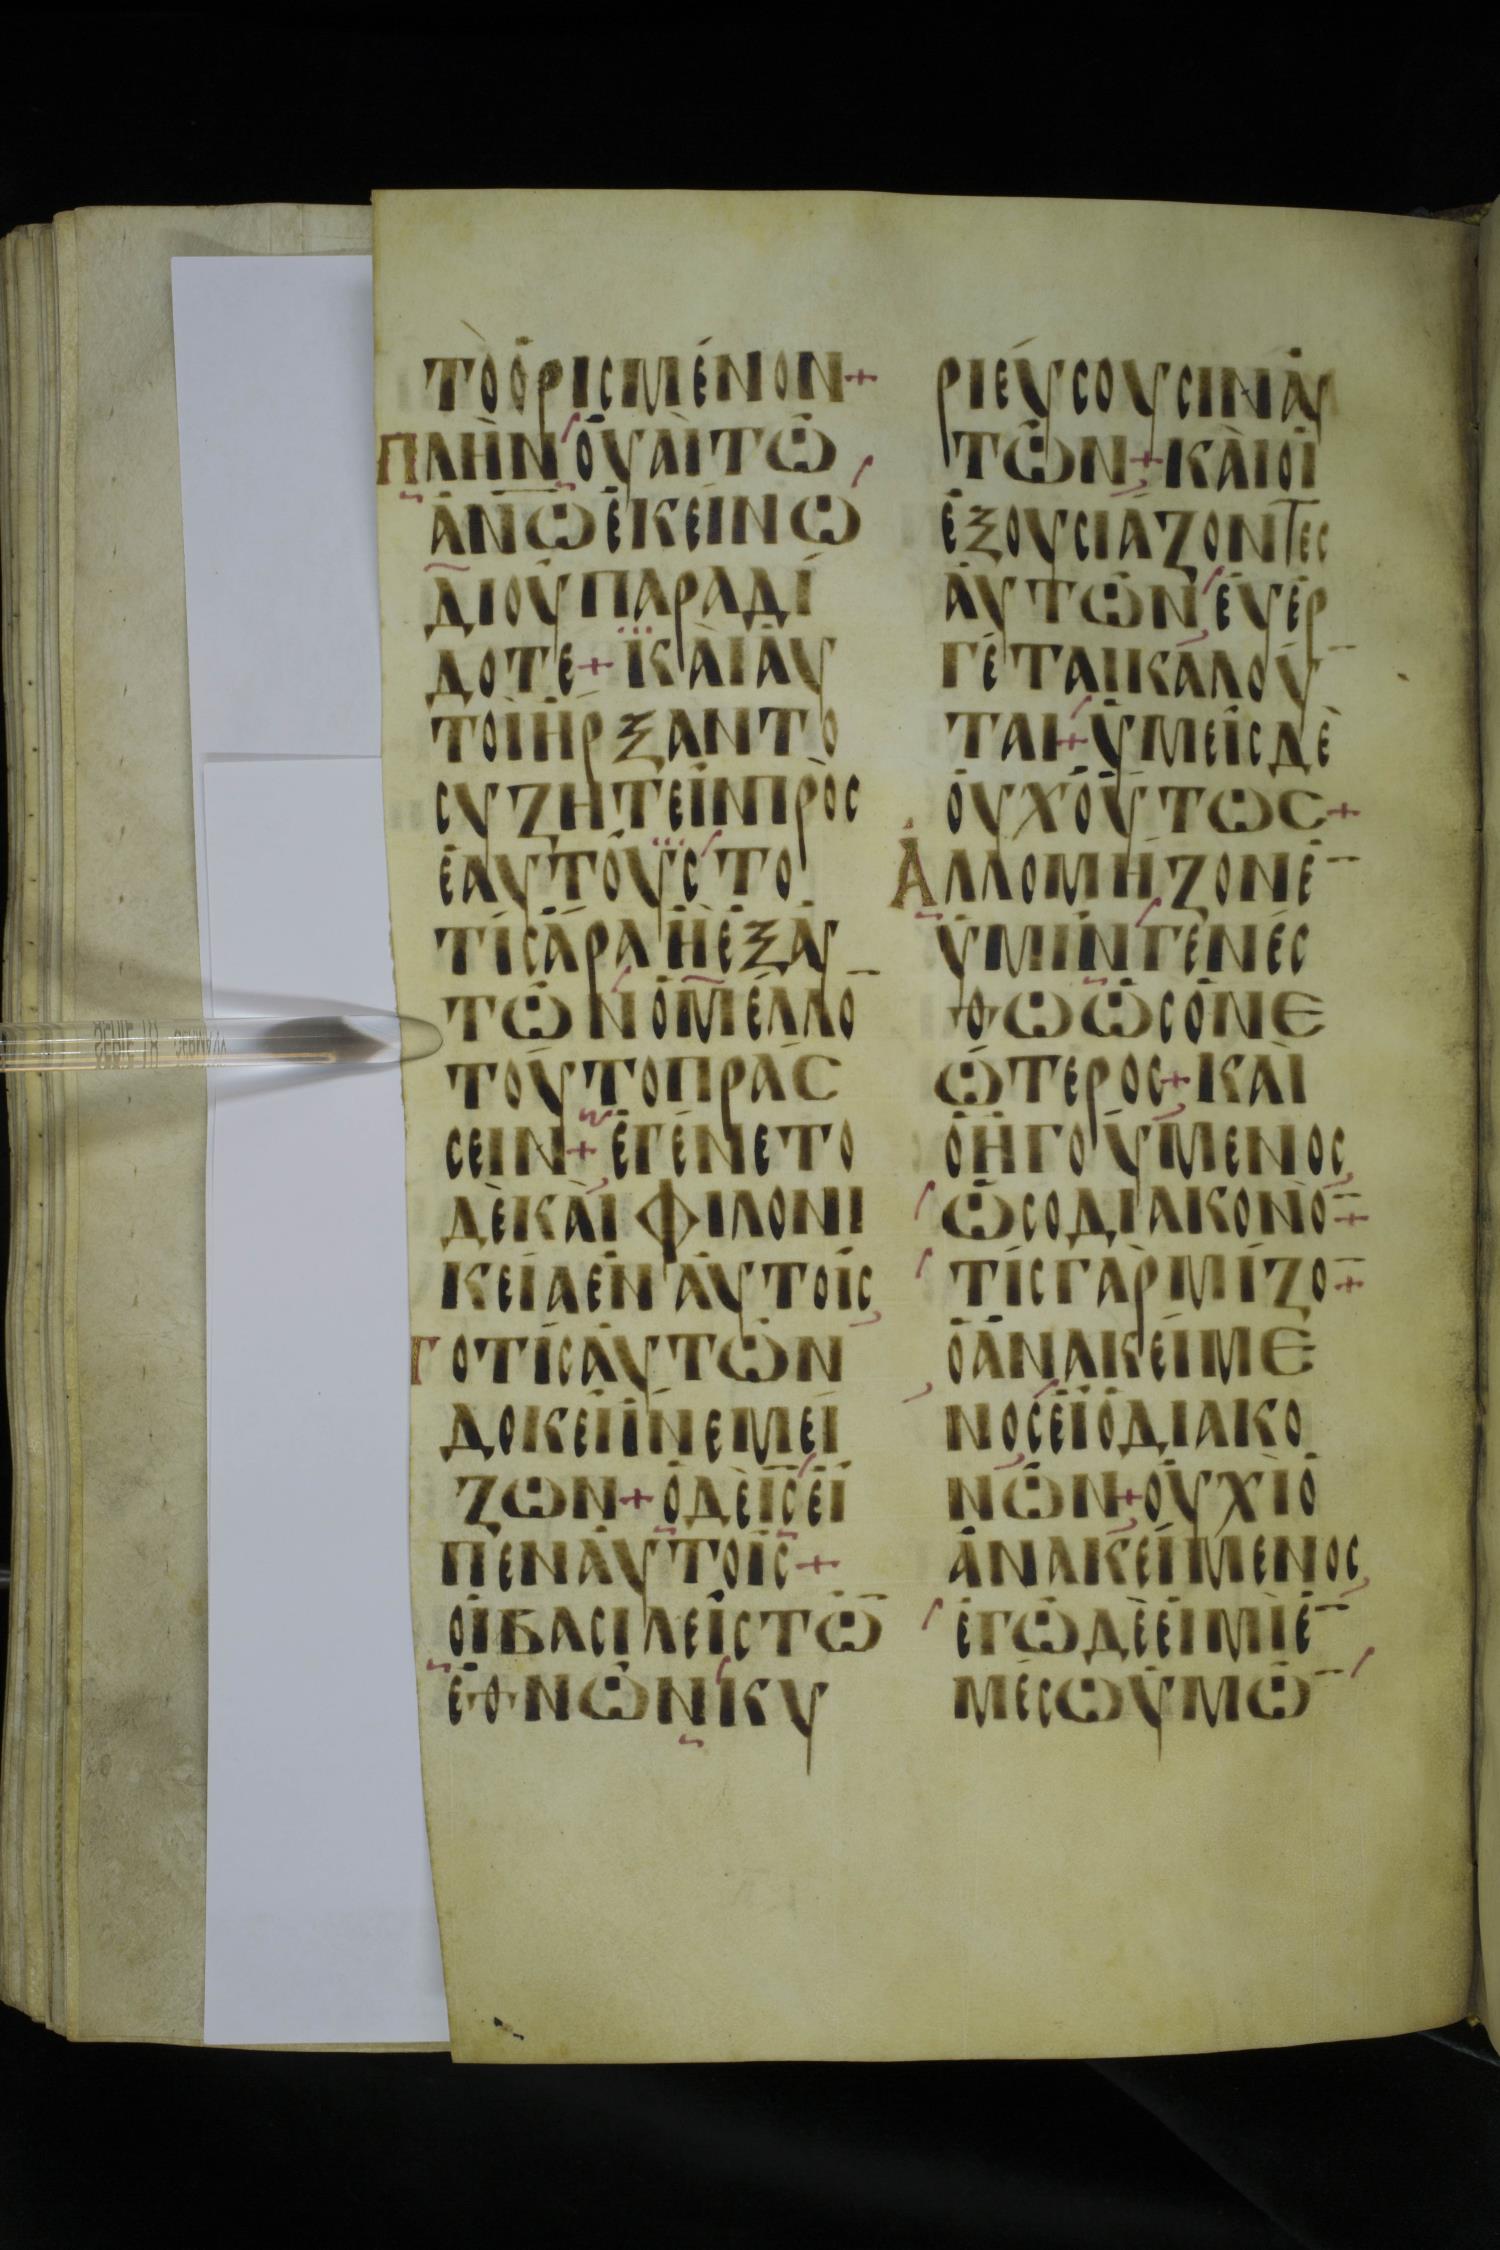 ΤῸὉΡΙΣΜΈΝΟΝ+
ΠΛῊΝΟΥΑῚΤΩ͂
ἈΝΩἘΚΕΊΝΩ
ΔΙΟΥΠΑΡΑΔΊ
ΔΟΤΕ+ΚΑῚΑΥ
ΤΟΙΗΡΞΑΝΤΟ
ΣΥΖΗΤΕΙΝΠΡῸΣ
ἙΑΥΤΟΎΣΤΟ
ΤΊΣΑΡΑΗΕΞΑΥ
ΤΩΝΟΜΈΛΛΟ̄
ΤΟΥΤΟΠΡΆΣ
ΣΕΙΝ+ἘΓΈΝΕΤΟ
ΔῈΚΑῚΦΙΛΟΝΙ
ΚΕΊΑΕΝΑΥΤΟΙΣ
ΤΟΤΊΣΑΥΤΩΝ
ΔΟΚΕΙΙΝΕΜΕΊ
ΖΩΝ+ὉΔῈΙΣΕΙ
ΠΕΝΑΥΤΟΙΣ+
ΟΙΒΑΣΙΛΕΙΣΤΩ̄
ἘΘΝΩΝΚΥ
ΡΙΕΎΣΟΥΣΙΝΑΥ
ΤΩΝ+ΚΑῚΟΙ
ἘΞΟΥΣΙΆΖΟΝΤΕΣ
ΑΥΤΩΝΕΥΕΡ
ΓΈΤΑΙΚΑΛΟῩ
ΤΑΙ+ΥΜΕΙΣΔῈ
ΟΥΧΟΥΤΩΣ+
ἈΛΛΟΜΉΖΟΝἘ̄
ΥΜΙΝΓΕΝΈΣ
ΘΩΩΣΟΝΕ
ΏΤΕΡΟΣ+ΚΑῚ
ὉΗΓΟΎΜΕΝΟΣ
ΩΣΟΔΙΑΚΟΝΟ̄+
ΤΊΣΓΑΡΜΊΖΟ̄+
ὉἈΝΑΚΕΊΜΕ
ΝΟΣΕΙὉΔΙΑΚΟ
ΝΩΝ+ΟΥΧῚὉ
ἈΝΑΚΕΊΜΕΝΟΣ
ἘΓΩΔῈΕΙΜῚἘ̄
ΜΈΣΩΥΜΩ̄